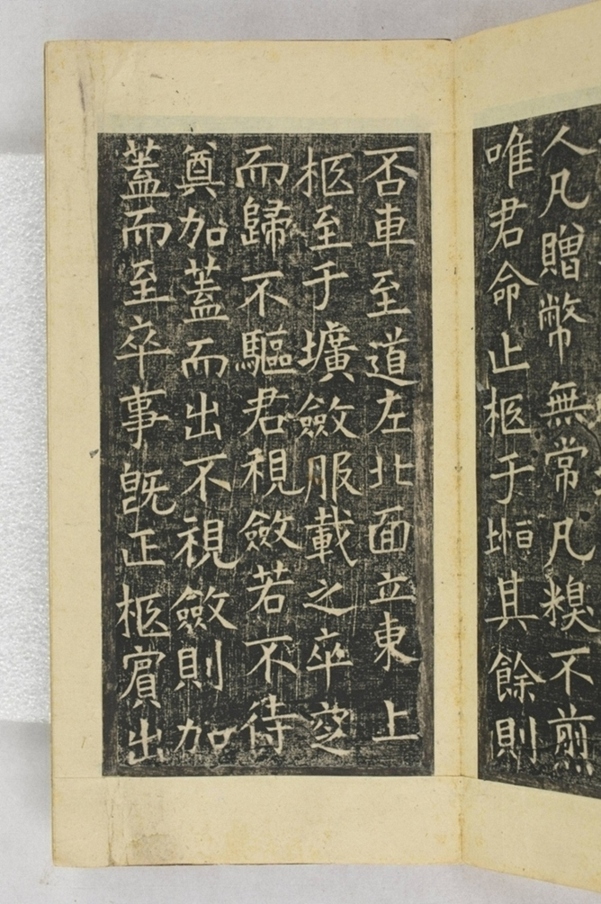 人凡贈幣無常凡糗不煎
唯君命止柩于堩其餘則
否車至道左北面立東上
柩至于壙斂服載之卒窆
而歸不驅君視斂若不待
奠加蓋而出不視斂則加
蓋而至卒事既正柩賓出